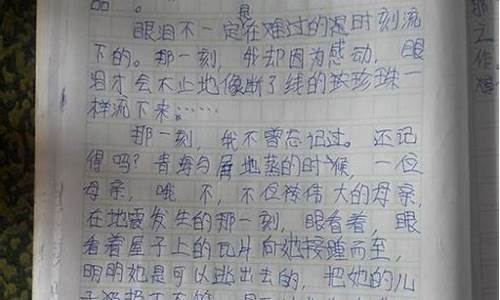 品。
眼泪不一定在难过的是时刻流
下的。那一刻，我却因为感动，眼
泪才会不止地像断了线的珍珠一
样流下来……
那一刻，我不曾忘记过。还记
得吗？青海 地 的时候，一位
母亲，哦 不，不 伟大的母亲，
在地震发生的那一刻，眼看着，眼
看着屋子上的瓦片向她接踵而至，
明明她是可以逃出去的，把她的儿